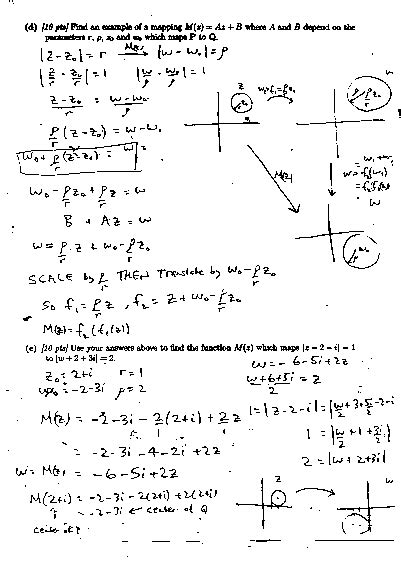 (d) [10 pts] Find an example of a mapping M(z) = Az + B where A and B depend on the
parameters r, ρ, z₀ and w₀ which maps P to Q.
|z - z₀| = r → M(z) |w - w₀| = ρ
|z/r - z₀/r| = 1 |w/ρ - w₀/ρ| = 1
(z - z₀)/r = (w - w₀)/ρ
ρ/r (z - z₀) = w - w₀
w₀ + ρ/r (z - z₀) = w
w₀ - ρ/r z₀ + ρ/r z = w
B + Az = w
w = ρ/r z + w₀ - ρ/r z₀
SCALE by ρ/r THEN Translate by w₀ - ρ/r z₀
So f₁ = ρ/r z , f₂ = z + w₀ - ρ/r z₀
M(z) = f₂(f₁(z))
z
w
M(z)
w
(e) [10 pts] Use your answers above to find the function M(z) which maps |z - 2 - i| = 1
to |w + 2 + 3i| = 2.
z₀ = 2+i r = 1
w₀ = -2-3i ρ = 2
w = -6-5i+2z
(w+6+5i)/2 = z
M(z) = -2-3i - 2(2+i) + 2z
1 = |z-2-i| = |(w/2+3+5i/2-2-i|
= -2-3i-4-2i+2z
1 = |w/2+1+3i/2|
w = M(z) = -6-5i+2z
2 = |w+2+3i|
M(2+i) = -2-3i-2(2+i)+2(2+i)
= -2-3i ← center of Q
center of P
z
w